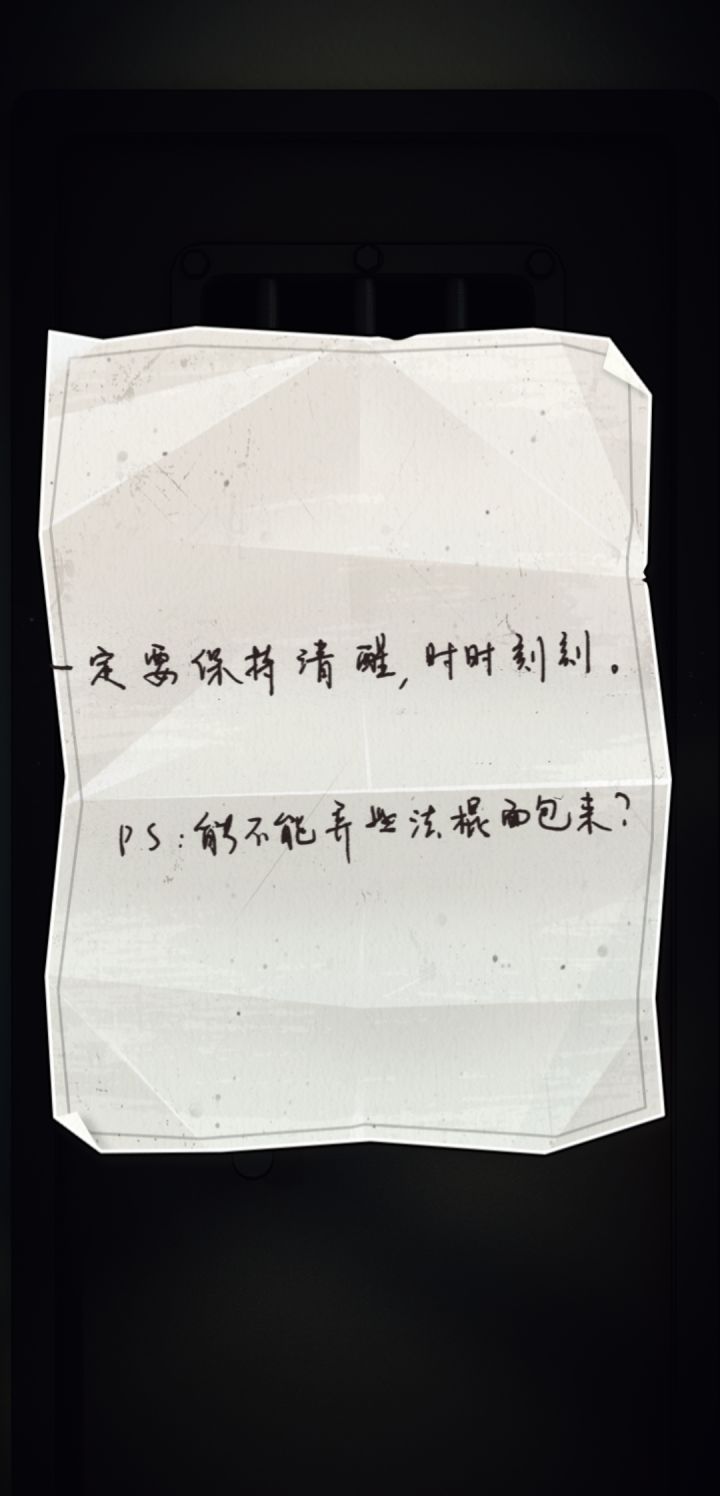 一定要保持清醒,时时刻刻。
PS:能不能弄些法棍面包来?